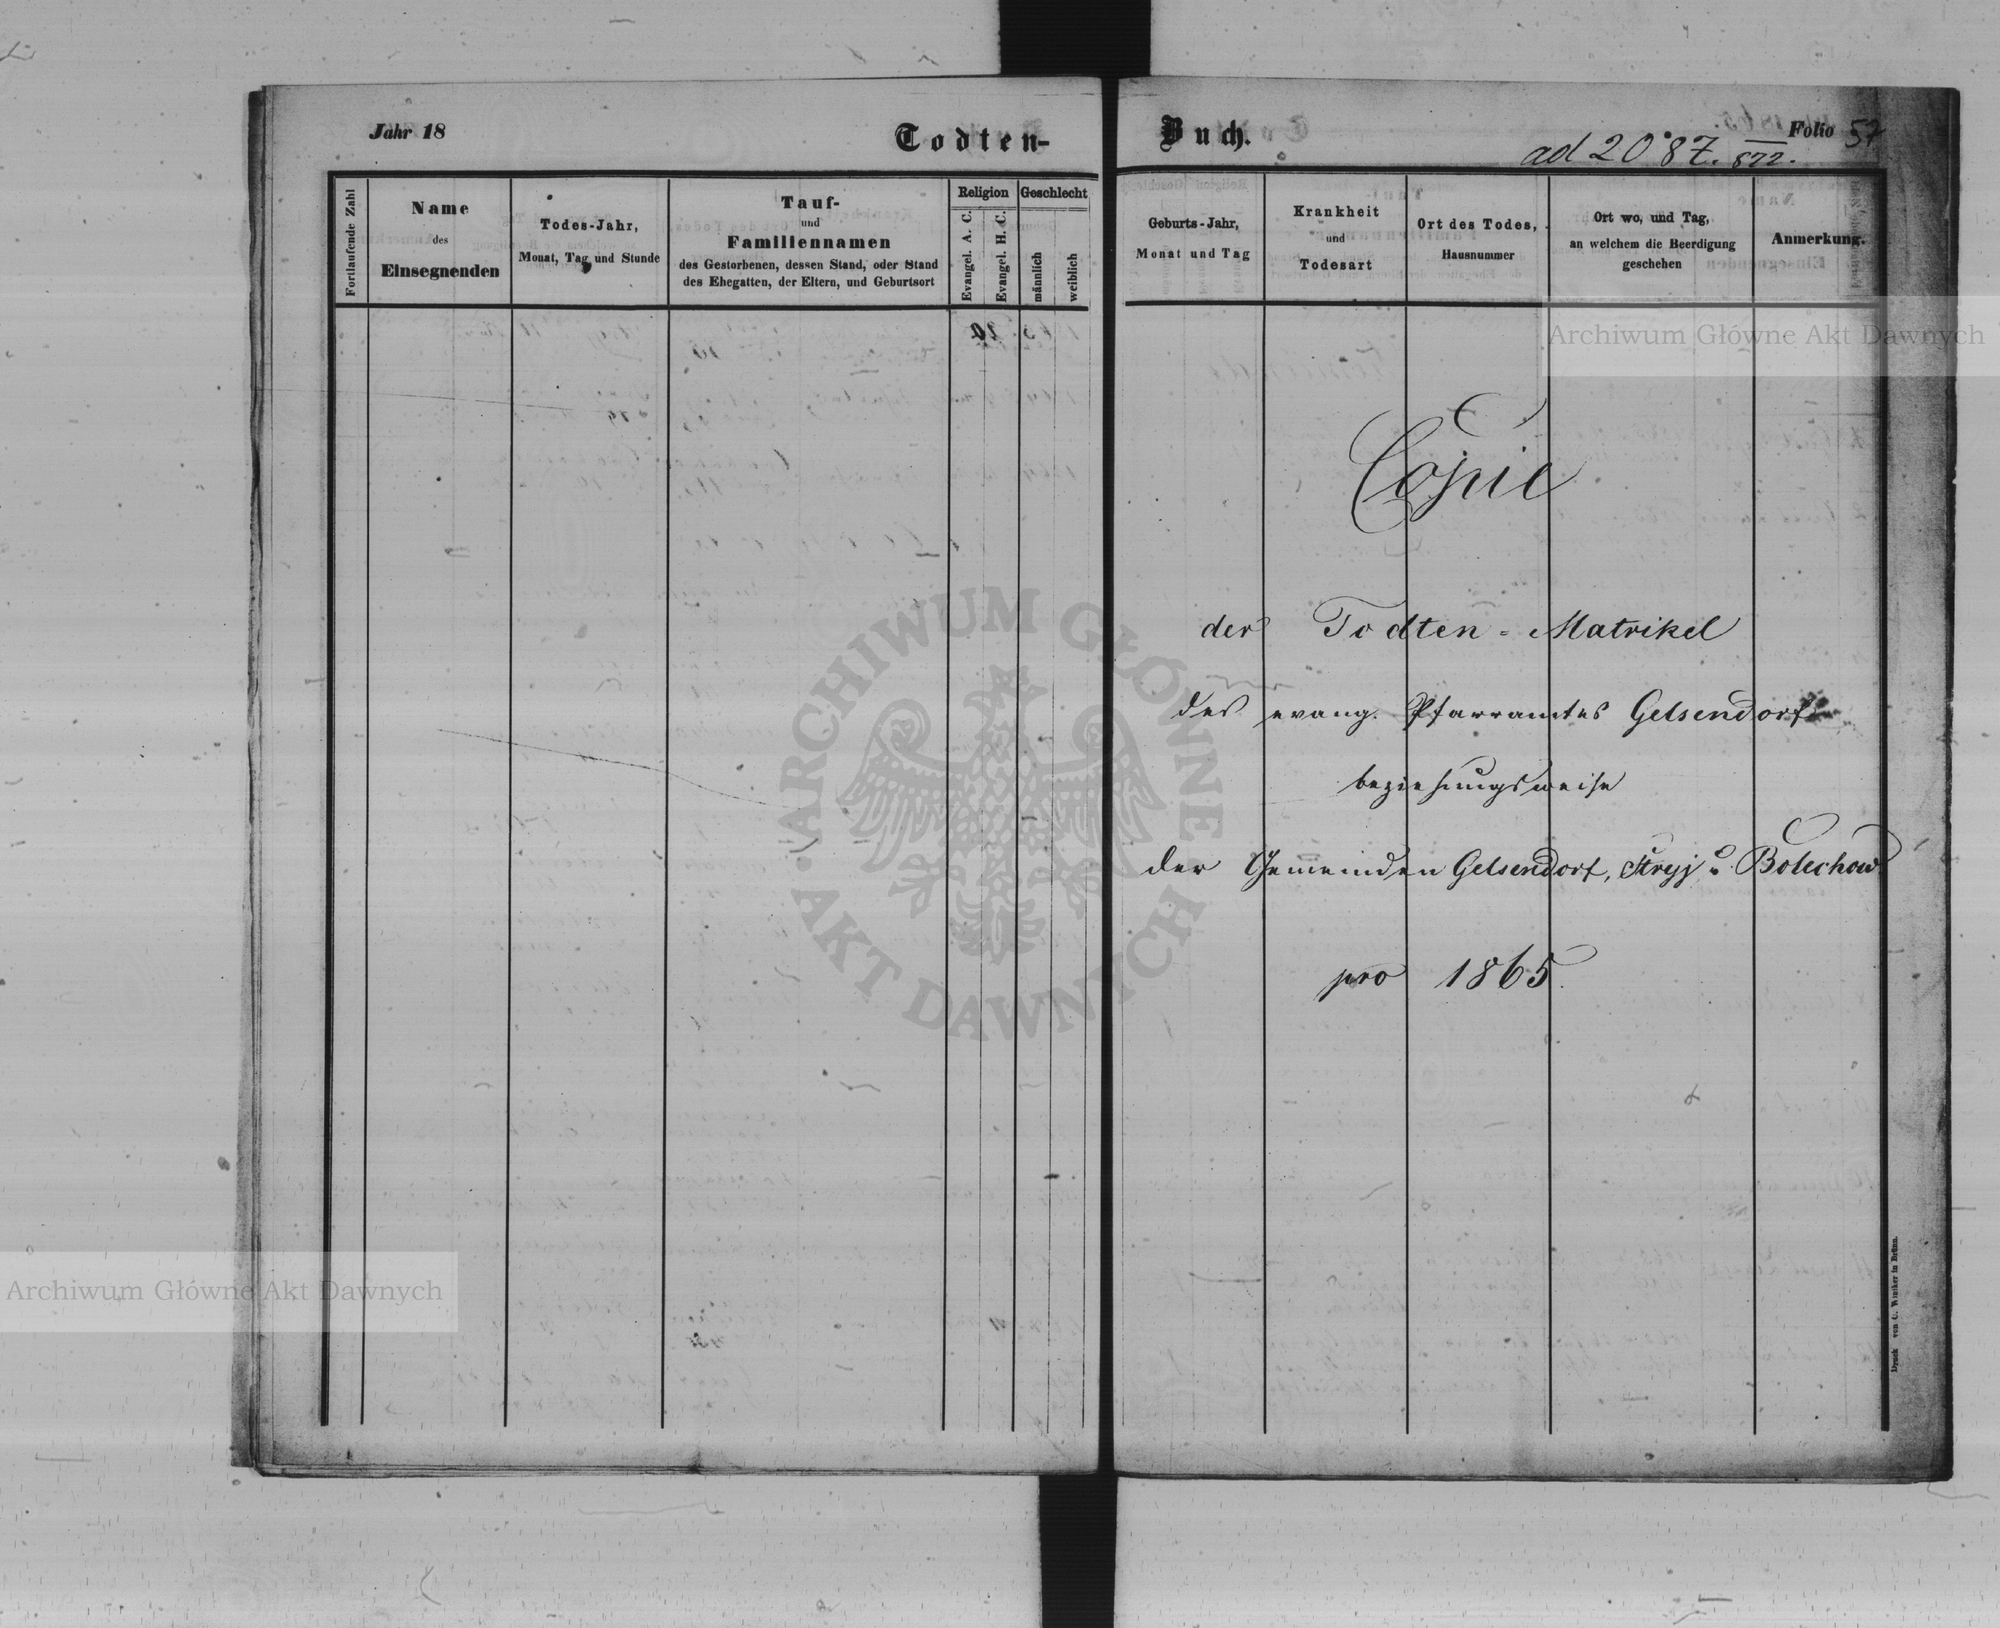 Jahr 18
Todten-
Fortlaufende Zahl
Name
des
Einsegnenden
Todes-Jahr,
Monat, Tag und Stunde
Tauf-
und
Familiennamen
des Gestorbenen, dessen Stand, oder Stand
des Ehegatten, der Eltern, und Geburtsort
Religion
Evangel. A. C.
Evangel. H. C.
Geschlecht
männlich
weiblich
Buch.
Folio 57
ad 2087. 872.
Geburts-Jahr,
Monat und Tag
Krankheit
und
Todesart
Ort des Todes,
Hausnummer
Ort wo, und Tag,
an welchem die Beerdigung
geschehen
Anmerkung.
Copie
der Todten-Matrikel
des evang. Pfarramtes Gelsendorf
beziehungsweise
der Gemeinden Gelsendorf, Stryj u. Bolechow
pro 1865.
Druck von C. Winiker in Brünn.
Archiwum Główne Akt Dawnych
ARCHIWUM GŁÓWNE
AKT DAWNYCH
Archiwum Główne Akt Dawnych